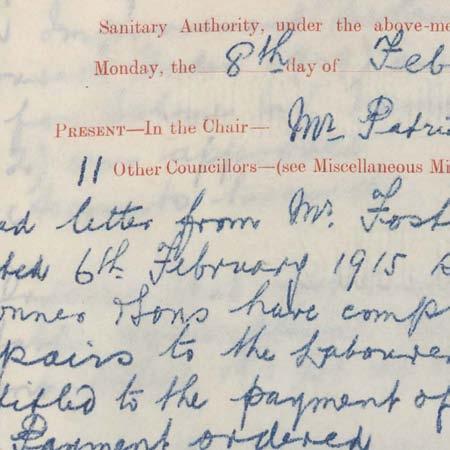 Sanitary Authority, under the above-me
Monday, the 8th day of Feb
PRESENT—In the Chair— Mr Patri
11 Other Councillors—(see Miscellaneous Mi
ad letter from Mr. Fost
ted 6th February 1915
onnes & Sons have comp
pairs to the Labourer
titled to the payment of
Payment ordered